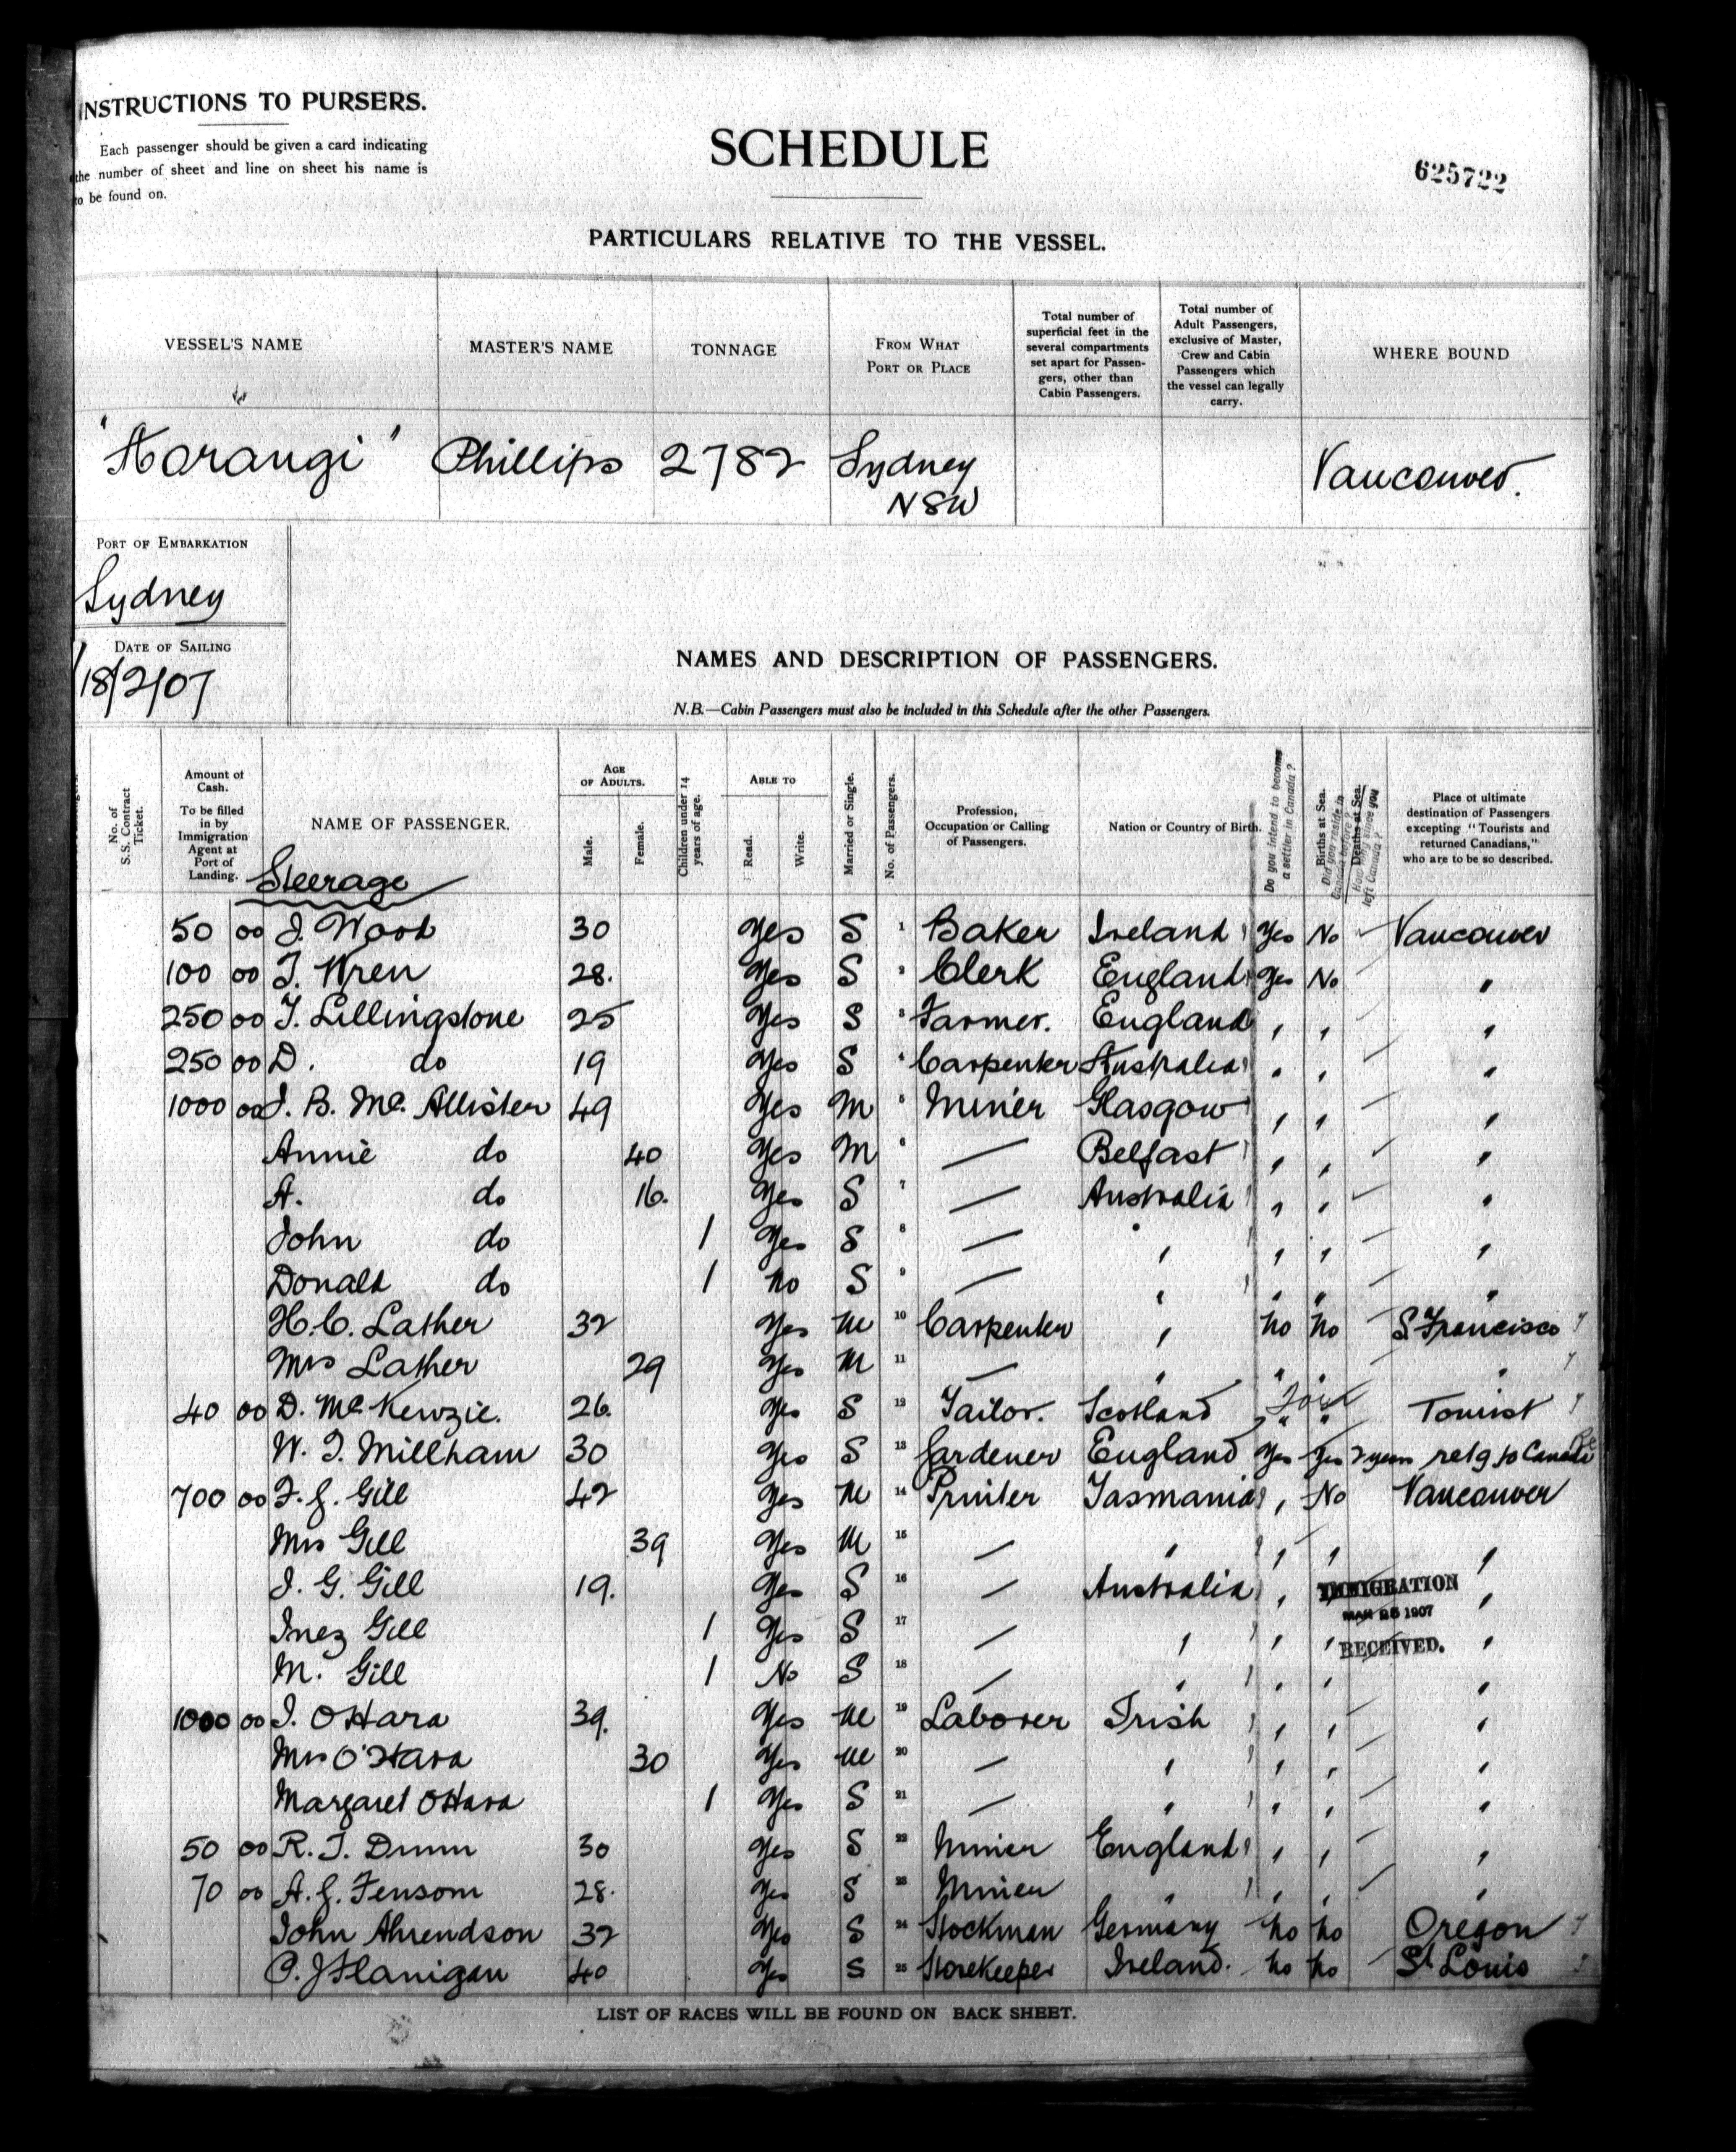 INSTRUCTIONS TO PURSERS.
Each passenger should be given a card indicating
the number of sheet and line on sheet his name is
to be found on.
SCHEDULE
625722
PARTICULARS RELATIVE TO THE VESSEL.
VESSEL'S NAME
MASTER'S NAME
TONNAGE
FROM WHAT
PORT OR PLACE
Total number of
superficial feet in the
several compartments
set apart for Passen-
gers, other than
Cabin Passengers.
Total number of
Adult Passengers,
exclusive of Master,
Crew and Cabin
Passengers which
the vessel can legally
carry.
WHERE BOUND
"Aorangi" Phillips 2782 Sydney Vancouver.
NSW
PORT OF EMBARKATION
Sydney
DATE OF SAILING
18/2/07
NAMES AND DESCRIPTION OF PASSENGERS.
N.B.—Cabin Passengers must also be included in this Schedule after the other Passengers.
No. of
S.S. Contract
Ticket.
Amount of
Cash.
To be filled
in by
Immigration
Agent at
Port of
Landing.
NAME OF PASSENGER.
Steerage
AGE
OF ADULTS.
Male.
Female.
Children under 14
years of age.
ABLE TO
Read.
Write.
Married or Single.
No. of Passengers.
Profession,
Occupation or Calling
of Passengers.
Nation or Country of Birth.
Do you intend to become
a settler in Canada ?
Births at Sea.
Did you reside in
Canada before ?
Deaths at Sea.
How long since you
left Canada ?
Place of ultimate
destination of Passengers
excepting "Tourists and
returned Canadians,"
who are to be so described.
50 00 J. Wood 30 Yes S 1 Baker Ireland Yes No Vancouver
100 00 T. Wren 28. Yes S 2 Clerk England Yes No "
250 00 T. Lillingstone 25 Yes S 3 Farmer. England " " "
250 00 D. do 19 Yes S 4 Carpenter Australia " " "
1000 00 J. B. McAllister 49 Yes M 5 Miner Glasgow " " "
Annie do 40 Yes M 6 — Belfast " " "
A. do 16. Yes S 7 — Australia " " "
John do 1 Yes S 8 — " " " "
Donald do 1 No S 9 — " " " "
H. C. Lather 32 Yes M 10 Carpenter " No No S. Francisco
Mrs Lather 29 Yes M 11 — " " " "
40 00 D. McKenzie. 26. Yes S 12 Tailor. Scotland " " Tourist
W. T. Millham 30 Yes S 13 Gardener England Yes Yes 2 years retg to Canada
700 00 F. J. Gill 42 Yes M 14 Printer Tasmania " No Vancouver
Mrs Gill 39 Yes M 15 — " " " "
J. G. Gill 19. Yes S 16 — Australia " "
IMMIGRATION
MAR 25 1907
RECEIVED.
Inez Gill 1 Yes S 17 — " " " "
M. Gill 1 No S 18 — " " " "
1000 00 J. O'Hara 39. Yes M 19 Laborer Irish " " "
Mrs O'Hara 30 Yes M 20 — " " " "
Margaret O'Hara 1 Yes S 21 — " " " "
50 00 R. T. Dunn 30 Yes S 22 Miner England " " "
70 00 A. J. Fensom 28. Yes S 23 Miner " " " "
John Ahrendson 32 Yes S 24 Stockman Germany No No Oregon
P. J Flanigan 40 Yes S 25 Storekeeper Ireland. No No St Louis
LIST OF RACES WILL BE FOUND ON BACK SHEET.